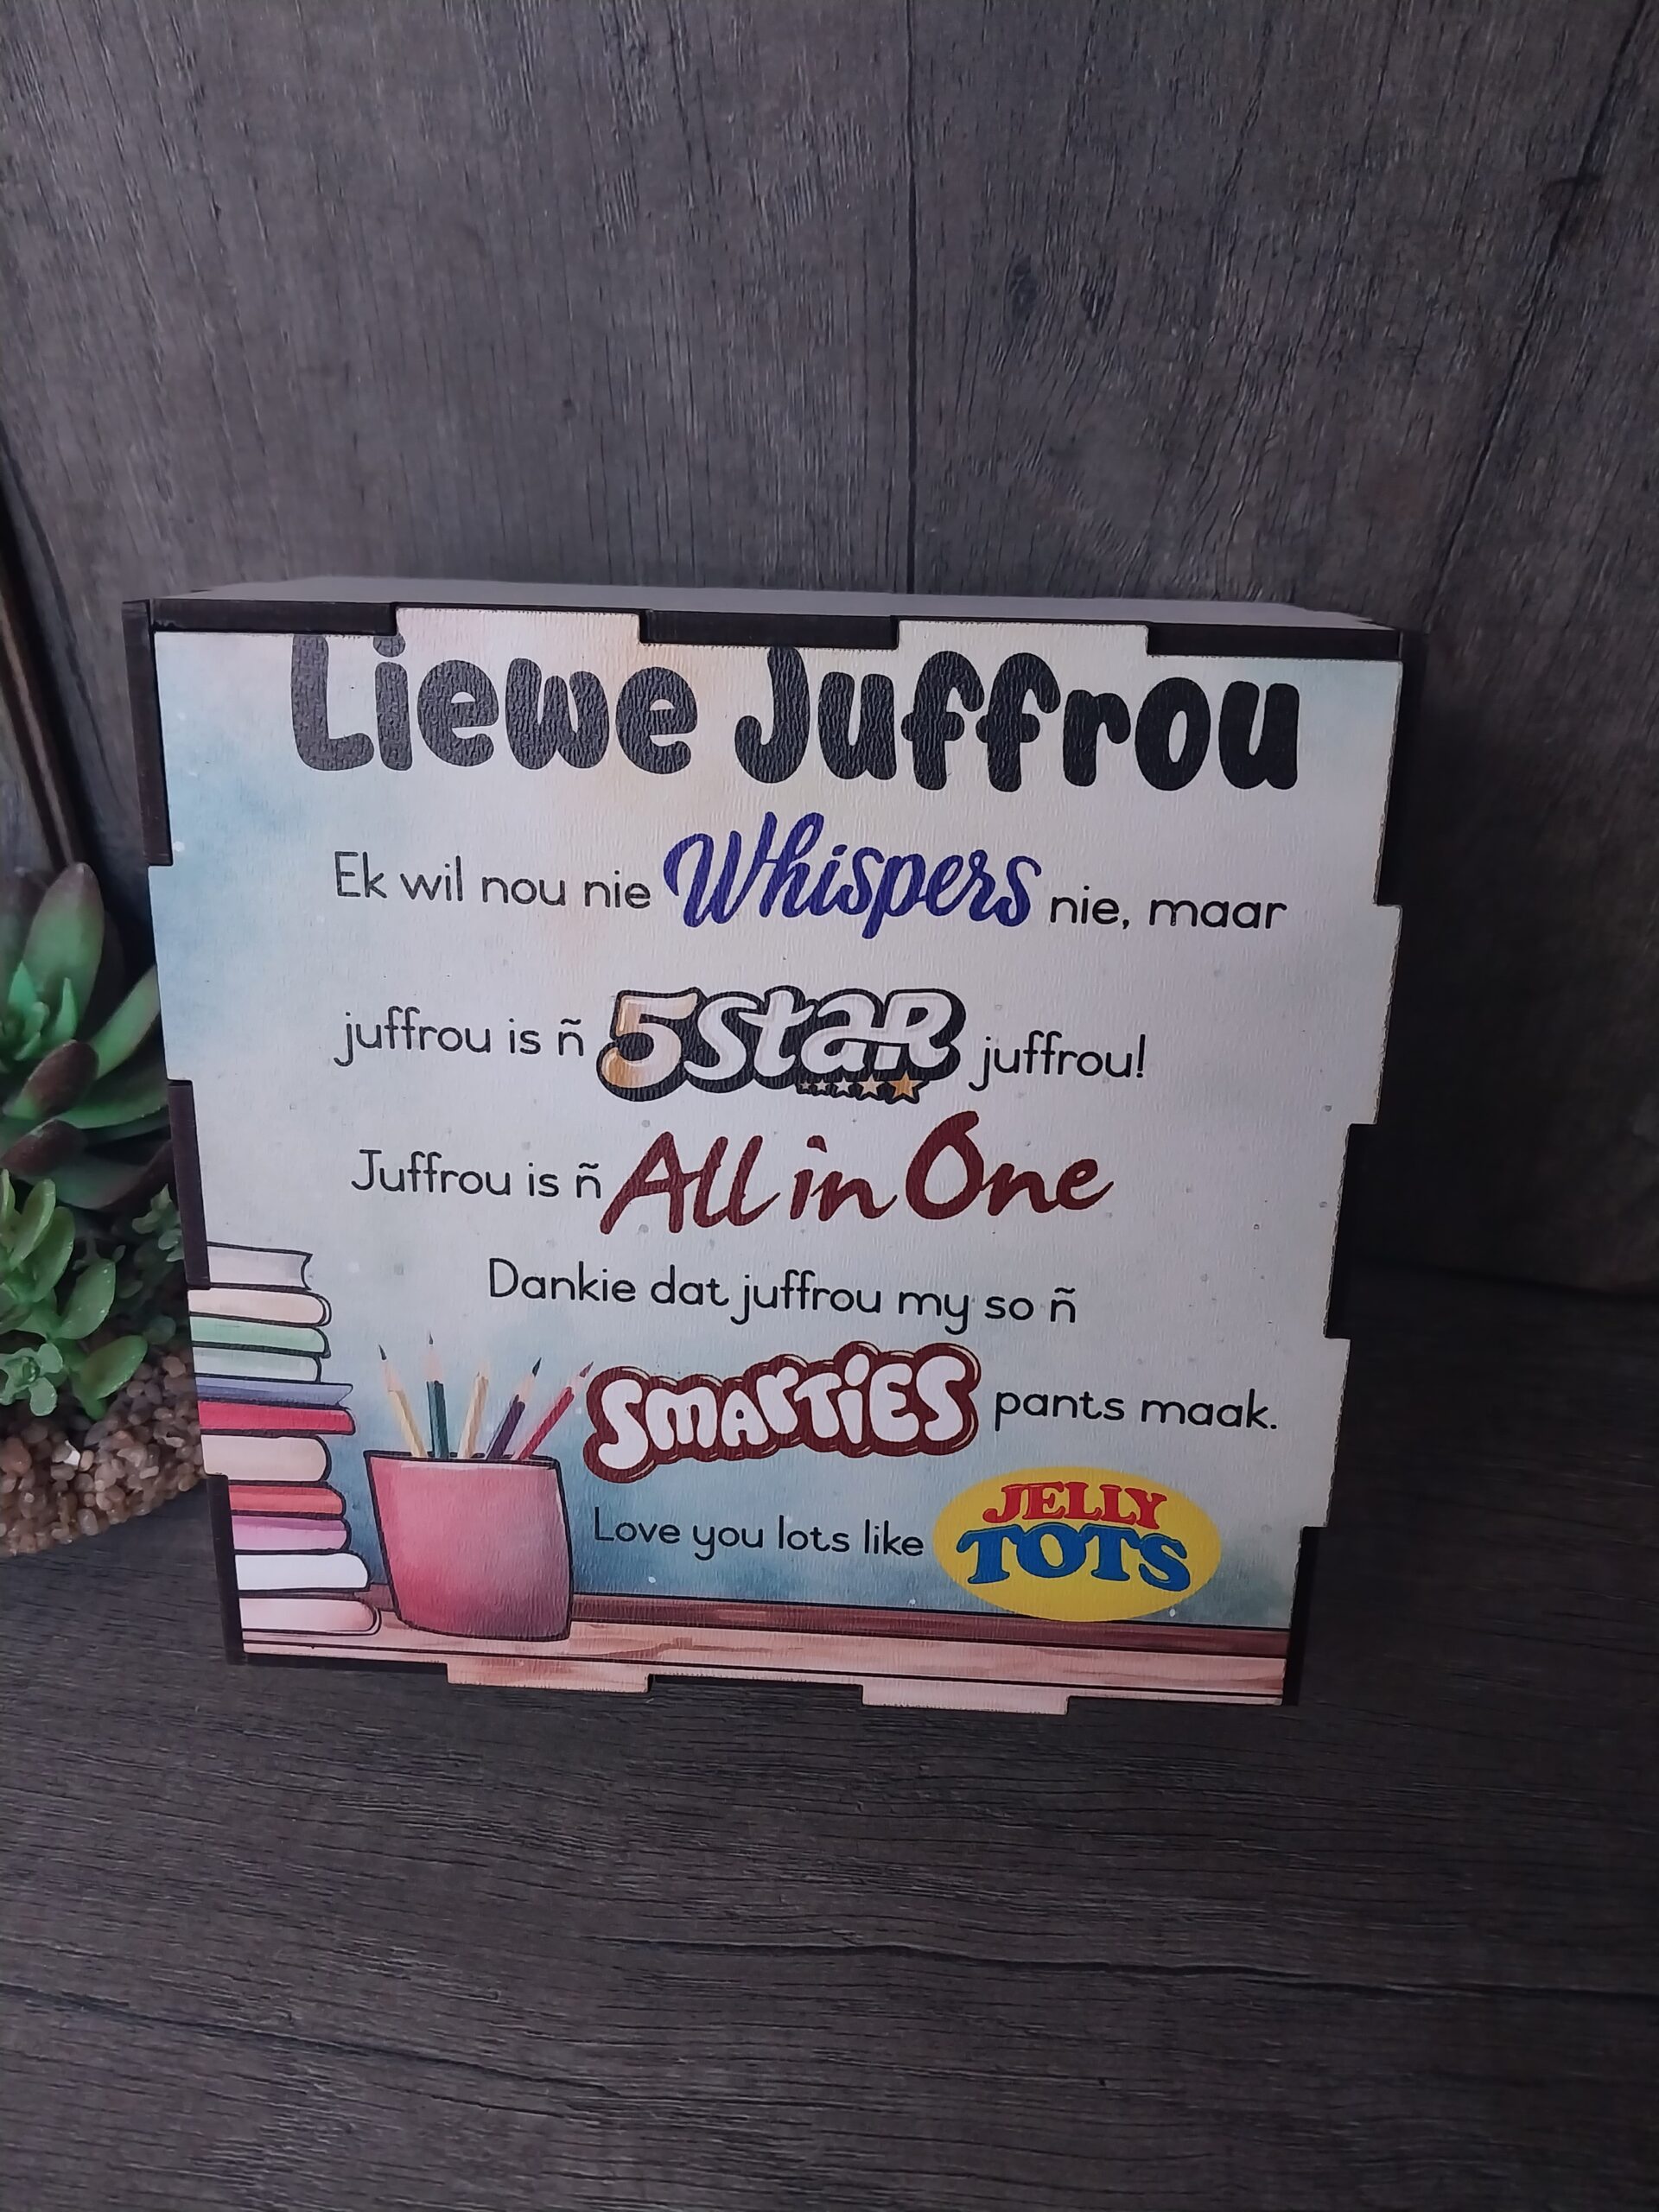 Liewe Juffrou
Ek wil nou nie Whispers nie, maar
juffrou is ñ 5Star juffrou!
Juffrou is ñ All in One
Dankie dat juffrou my so ñ
SMARTIES pants maak.
Love you lots like JELLY TOTS